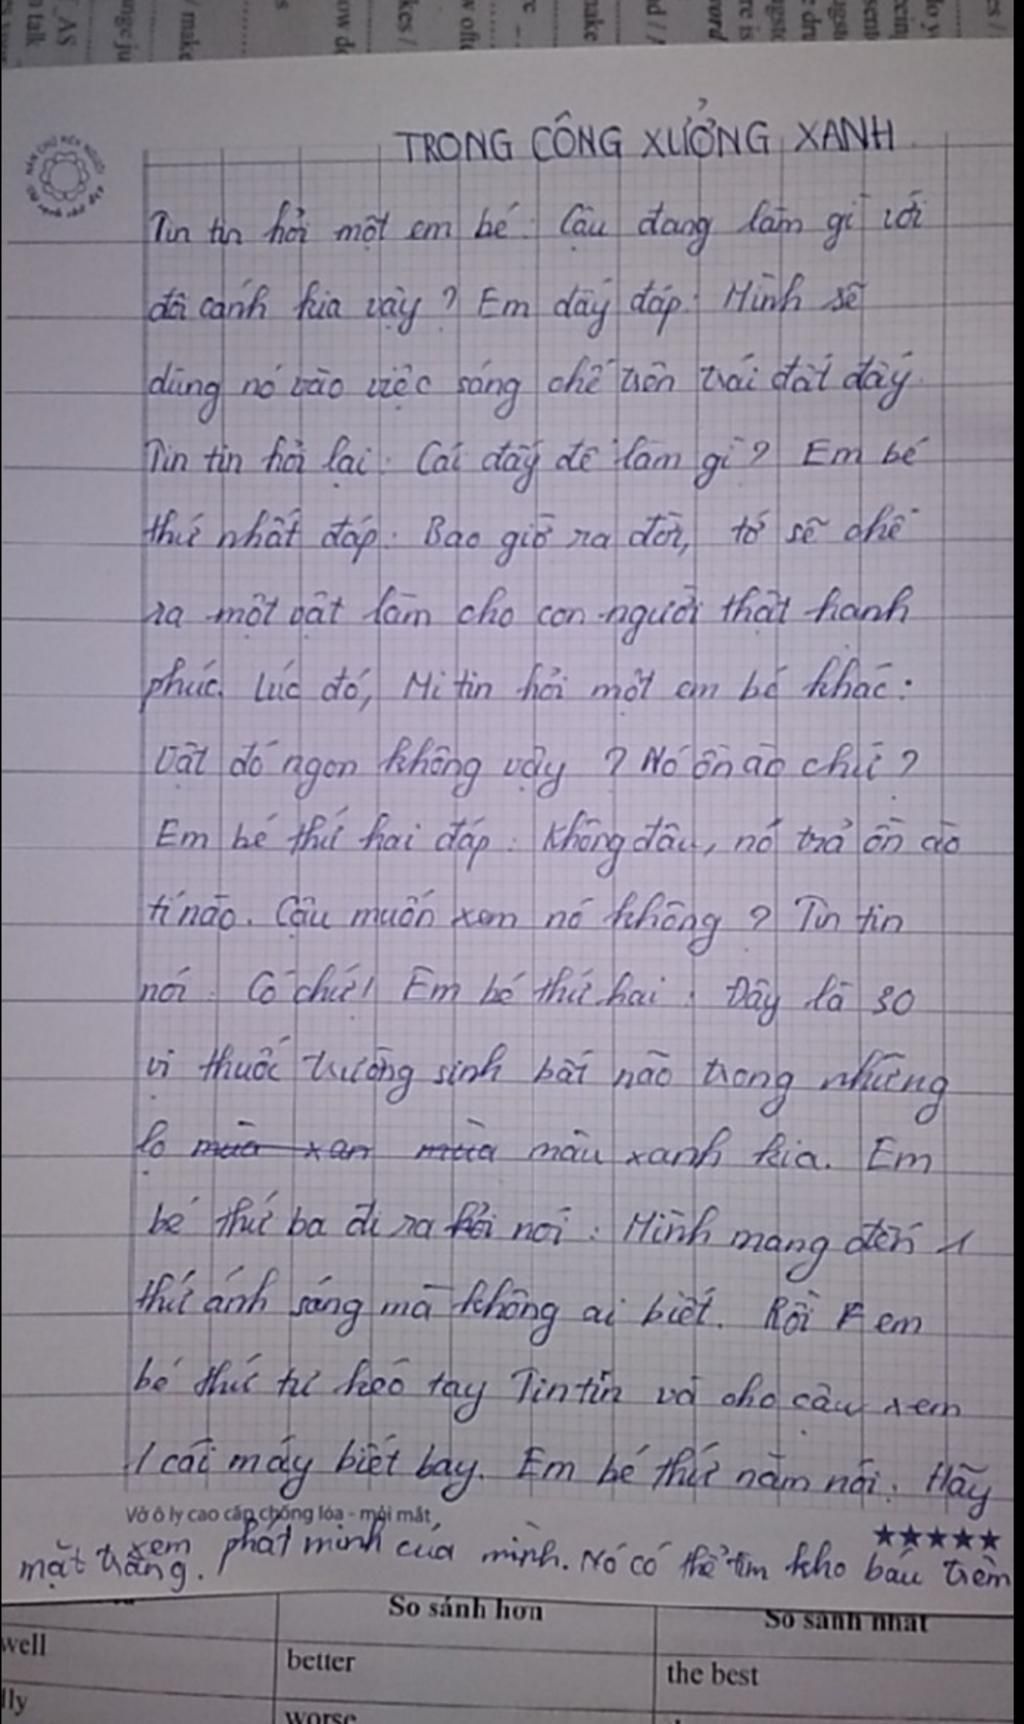 ow de
kes /
make
word
NÉN CHỮ RÈN NGƯỜI
TRONG CÔNG XƯỞNG XANH
Tin tin hỏi một em bé: Cậu đang làm gì với
đôi cánh kia vậy? Em đấy đáp: Mình sẽ
dùng nó vào việc sáng chế trên trái đất đấy.
Tin tin hỏi lại: Cái đấy để làm gì? Em bé
thứ nhất đáp: Bao giờ ra đời, tớ sẽ chế
ra một vật làm cho con người thật hanh
phúc. Lúc đó, Mi tin hỏi một em bé khác:
Vật đó ngon không vậy? Nó ồn ào chứ?
Em bé thứ hai đáp: Không đâu, nó trả ồn ào
tí nào. Cậu muốn xem nó không? Tin tin
nói: Có chứ! Em bé thứ hai: Đây là 30
vị thuốc trường sinh bất nào trong những
lọ màu xanh kia. Em
bé thứ ba đi ra nói: Mình mang đến 1
thứ ánh sáng mà không ai biết. Rồi em
bé thứ tư kéo tay Tin tin và cho cậu xem
1 cái máy biết bay. Em bé thứ năm nói: Hãy
Vở ô ly cao cấp chống lóa - mỏi mắt
xem phát minh của mình. Nó có thể tìm kho báu trên
mặt trăng.
So sánh hơn
So sánh nhất
well
better
the best
lly
worse